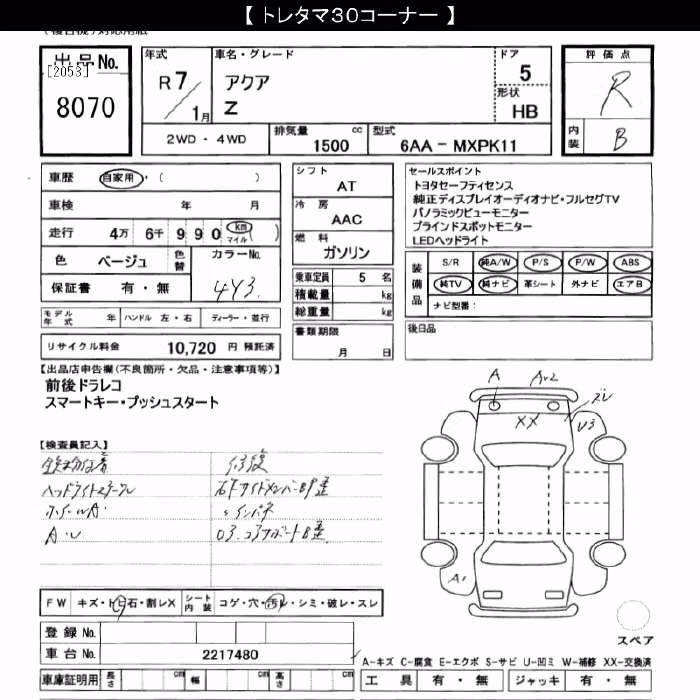 【 トレタマ30コーナー 】
出品No.
[2053]
8070
年式
R 7/1月
車名・グレード
アクア
Z
ドア
5
形状
HB
評価点
R
内装
B
2WD・4WD
排気量
1500 cc
型式
6AA－MXPK11
車歴 自家用・( )
車検 年 月
走行 4万 6千 9 9 0 km マイル ( )
色 ベージュ 色替 カラーNo.
4Y3.
保証書 有・無
モデル年式 年 ハンドル 左・右 ディーラー・並行
リサイクル料金 10,720 円 預託済
シフト
AT
冷房
AAC
燃料
ガソリン
乗車定員 5 名
積載量 kg
総重量 kg
書類期限
月 日
セールスポイント
トヨタセーフティセンス
純正ディスプレイオーディオナビ・フルセグTV
パノラミックビューモニター
ブラインドスポットモニター
LEDヘッドライト
装備品
S/R 純A/W P/S P/W ABS
純TV 純ナビ 革シート 外ナビ エアB
ナビ型番：
後日品
【出品店申告欄(不良箇所・欠品・注意事項等)】
前後ドラレコ
スマートキー・プッシュスタート
【検査員記入】
鉄粉付着
修復
ホイールA
インパネ
A・U
A
A×2
ズレ
XX
U3
A1
FW キズ・トビ石・割レX シート内装 コゲ・穴・汚レ・シミ・破レ・スレ
登録 No.
車台 No. 2217480
車庫証明用 長さ cm 幅 cm 高さ cm
スペア
A-キズ C-腐食 E-エクボ S-サビ U-凹ミ W-補修 XX-交換済
工具 有・無 ジャッキ 有・無